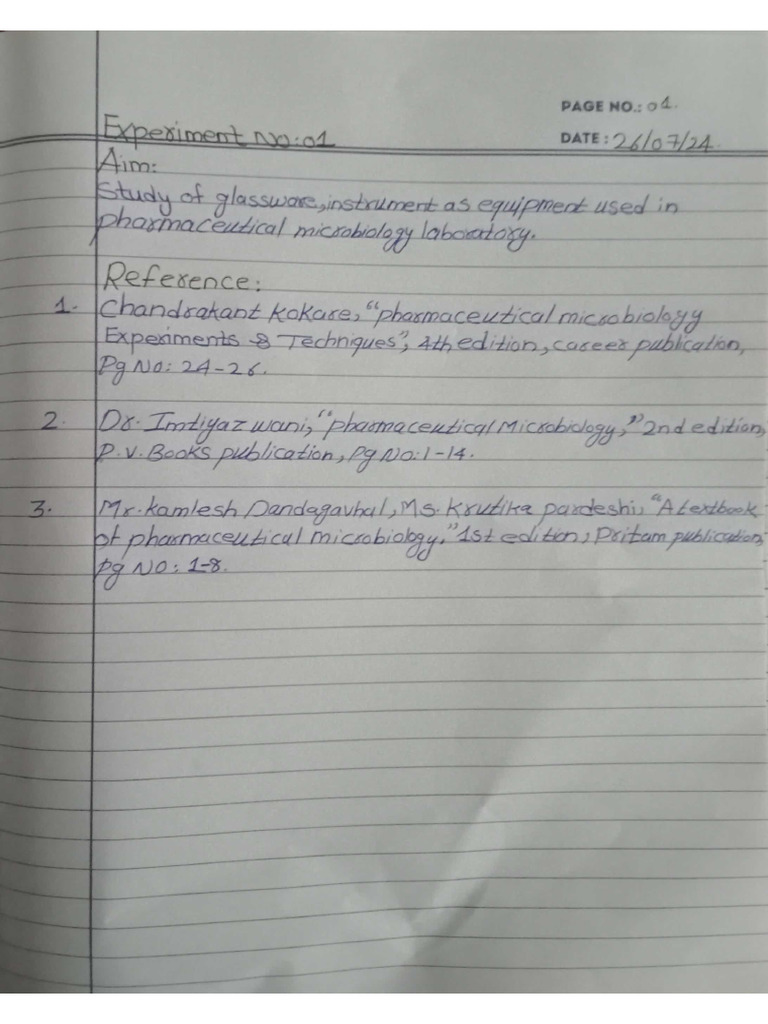 PAGE NO.: 01.
Experiment No:01
DATE: 26/07/24.
Aim:
Study of glassware, instrument as equipment used in
pharmaceutical microbiology laboratory.
Reference:
1. Chandrakant Kokare, "pharmaceutical microbiology
Experiments & Techniques", 4th edition, career publication,
Pg No: 24-26.
2. Dr. Imtiyaz wani, "pharmaceutical Microbiology," 2nd edition,
P.V. Books publication, Pg No: 1-14.
3. Mr. Kamlesh Dandagavhal, Ms. Krutika pardeshi, "A textbook
of pharmaceutical microbiology," 1st edition, Pritam publication,
Pg No: 1-8.